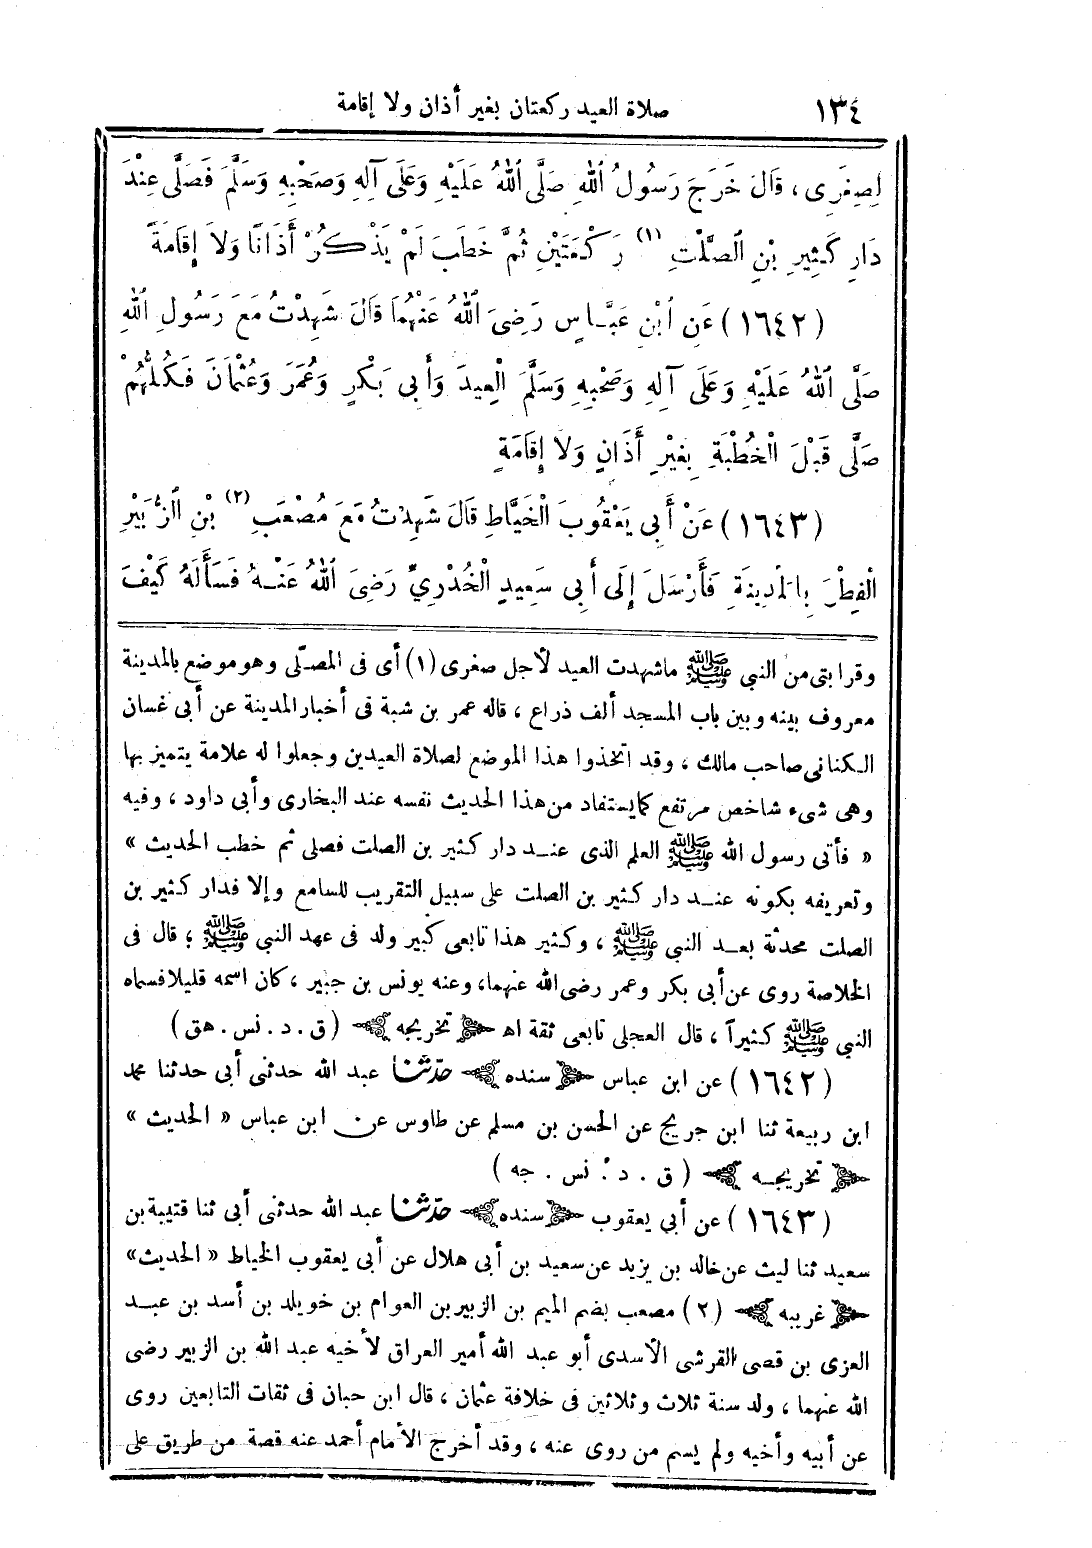 ١٣٤ صلاة العيد ركعتان بغير أذان ولا إقامة
لِصِغَرِى ، قَالَ خَرَجَ رَسُولُ اللهِ صَلَّى اللهُ عَلَيْهِ وَعَلَى آلِهِ وَصَحْبِهِ وَسَلَّمَ فَصَلَّى عِنْدَ
دَارِ كَثِيرِ بْنِ الصَّلْتِ (١) رَكْعَتَيْنِ ثُمَّ خَطَبَ لَمْ يَذْكُرْ أَذَانًا وَلاَ إِقَامَةً
(١٦٤٢) عَنِ ابْنِ عَبَّاسٍ رَضِىَ اللهُ عَنْهُمَا قَالَ شَهِدْتُ مَعَ رَسُولِ اللهِ
صَلَّى اللهُ عَلَيْهِ وَعَلَى آلِهِ وَصَحْبِهِ وَسَلَّمَ الْعِيدَ وَأَبِى بَكْرٍ وَعُمَرَ وَعُثْمَانَ فَكُلُّهُمْ
صَلَّى قَبْلَ الْخُطْبَةِ بِغَيْرِ أَذَانٍ وَلاَ إِقَامَةٍ
(١٦٤٣) عَنْ أَبِى يَعْقُوبَ الْخَيَّاطِ قَالَ شَهِدْتُ مَعَ مُصْعَبِ (٢) بْنِ الزُّبَيْرِ
الْفِطْرَ بِالْمَدِينَةِ فَأَرْسَلَ إِلَى أَبِى سَعِيدٍ الْخُدْرِىِّ رَضِىَ اللهُ عَنْهُ فَسَأَلَهُ كَيْفَ
وقرابتى من النبى ﷺ ماشهدت العيد لأجل صغرى (١) أى فى المصلّى وهو موضع بالمدينة
معروف بينه وبين باب المسجد ألف ذراع ، قاله عمر بن شبة فى أخبار المدينة عن أبى غسان
الكنانى صاحب مالك ، وقد اتخذوا هذا الموضع لصلاة العيدين وجعلوا له علامة يتميز بها
وهى شىء شاخص مرتفع كما يستفاد من هذا الحديث نفسه عند البخارى وأبى داود ، وفيه
« فأتى رسول الله ﷺ العلم الذى عند دار كثير بن الصلت فصلى ثم خطب الحديث »
وتعريفه بكونه عند دار كثير بن الصلت على سبيل التقريب للسامع وإلا فدار كثير بن
الصلت محدثة بعد النبى ﷺ ، وكثير هذا تابعى كبير ولد فى عهد النبى ﷺ ؛ قال فى
الخلاصة روى عن أبى بكر وعمر رضى الله عنهما، وعنه يونس بن جبير ، كان اسمه قليلا فسماه
النبى ﷺ كثيراً ، قال العجلى تابعى ثقة اهـ تخريجه (ق . د . نس . هق)
(١٦٤٢) عن ابن عباس سنده حدّثنا عبد الله حدثنى أبى حدثنا محمد
ابن ربيعة ثنا ابن جريج عن الحسن بن مسلم عن طاوس عن ابن عباس « الحديث »
تخريجه (ق . د . نس . جه)
(١٦٤٣) عن أبى يعقوب سنده حدّثنا عبد الله حدثنى أبى ثنا قتيبة بن
سعيد ثنا ليث عن خالد بن يزيد عن سعيد بن أبى هلال عن أبى يعقوب الخياط « الحديث»
غريبه (٢) مصعب بضم الميم بن الزبير بن العوام بن خويلد بن أسد بن عبد
العزى بن قصى القرشى الأسدى أبو عبد الله أمير العراق لأخيه عبد الله بن الزبير رضى
الله عنهما ، ولد سنة ثلاث وثلاثين فى خلافة عثمان ، قال ابن حبان فى ثقات التابعين روى
عن أبيه وأخيه ولم يسم من روى عنه ، وقد أخرج الأمام أحمد عنه قصة من طريق على